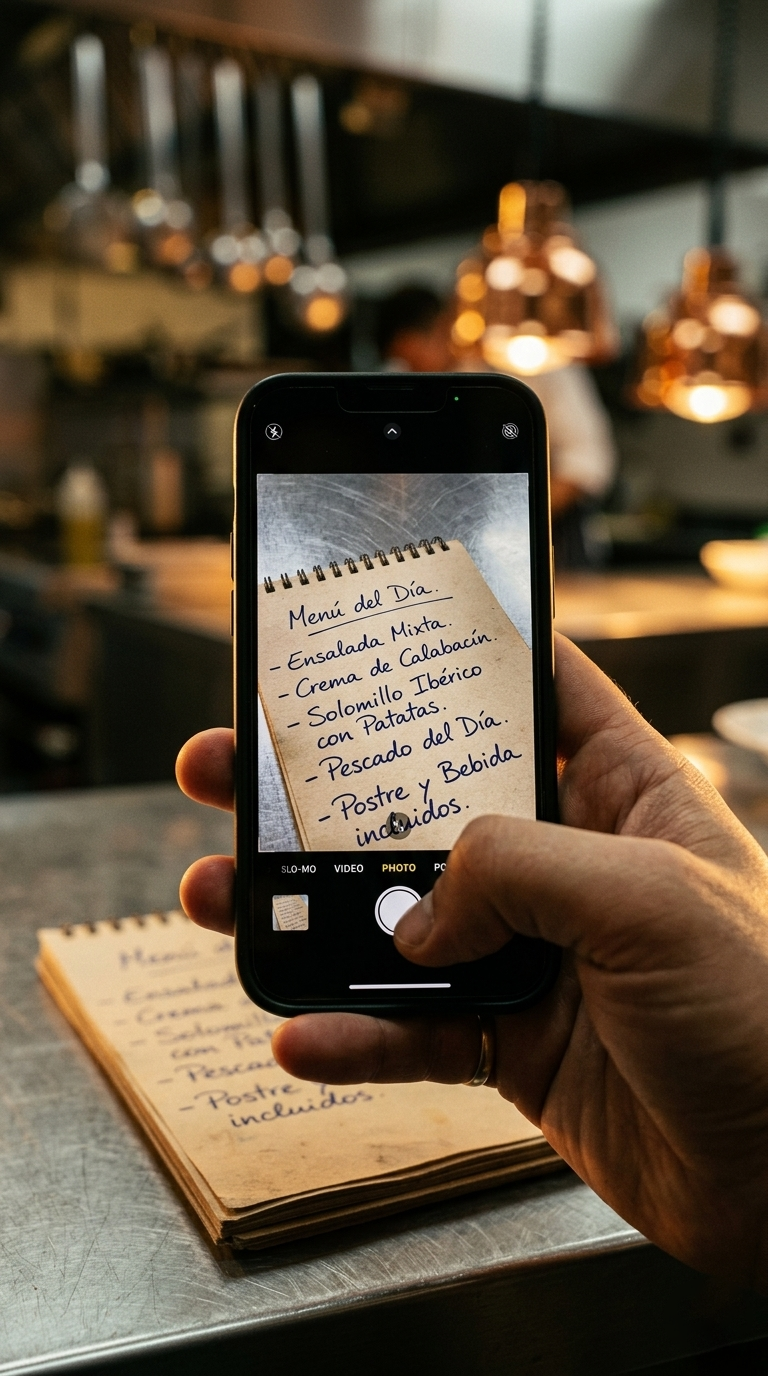 Menú del Día.
- Ensalada Mixta.
- Crema de Calabacín.
- Solomillo Ibérico
con Patatas.
- Pescado del Día.
- Postre y Bebida
incluidos.
SLO-MO VIDEO PHOTO
Menú
- Ensalada
- Crema
- Solomillo
con
-
- Postre y
incluidos.